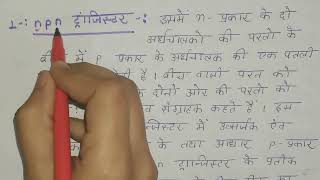 1-: npn ट्रांजिस्टर -: इसमें n-प्रकार के दो
अर्धचालकों की परतों के
बीच में P प्रकार के अर्धचालक की एक पतली
है। बीच वाली परत को
के दोनों ओर की परतों को
संग्राहक कहते हैं। इस
में उत्सर्जक एवं
के तथा आधार P-प्रकार
n- ट्रान्जिस्टर के प्रतीक